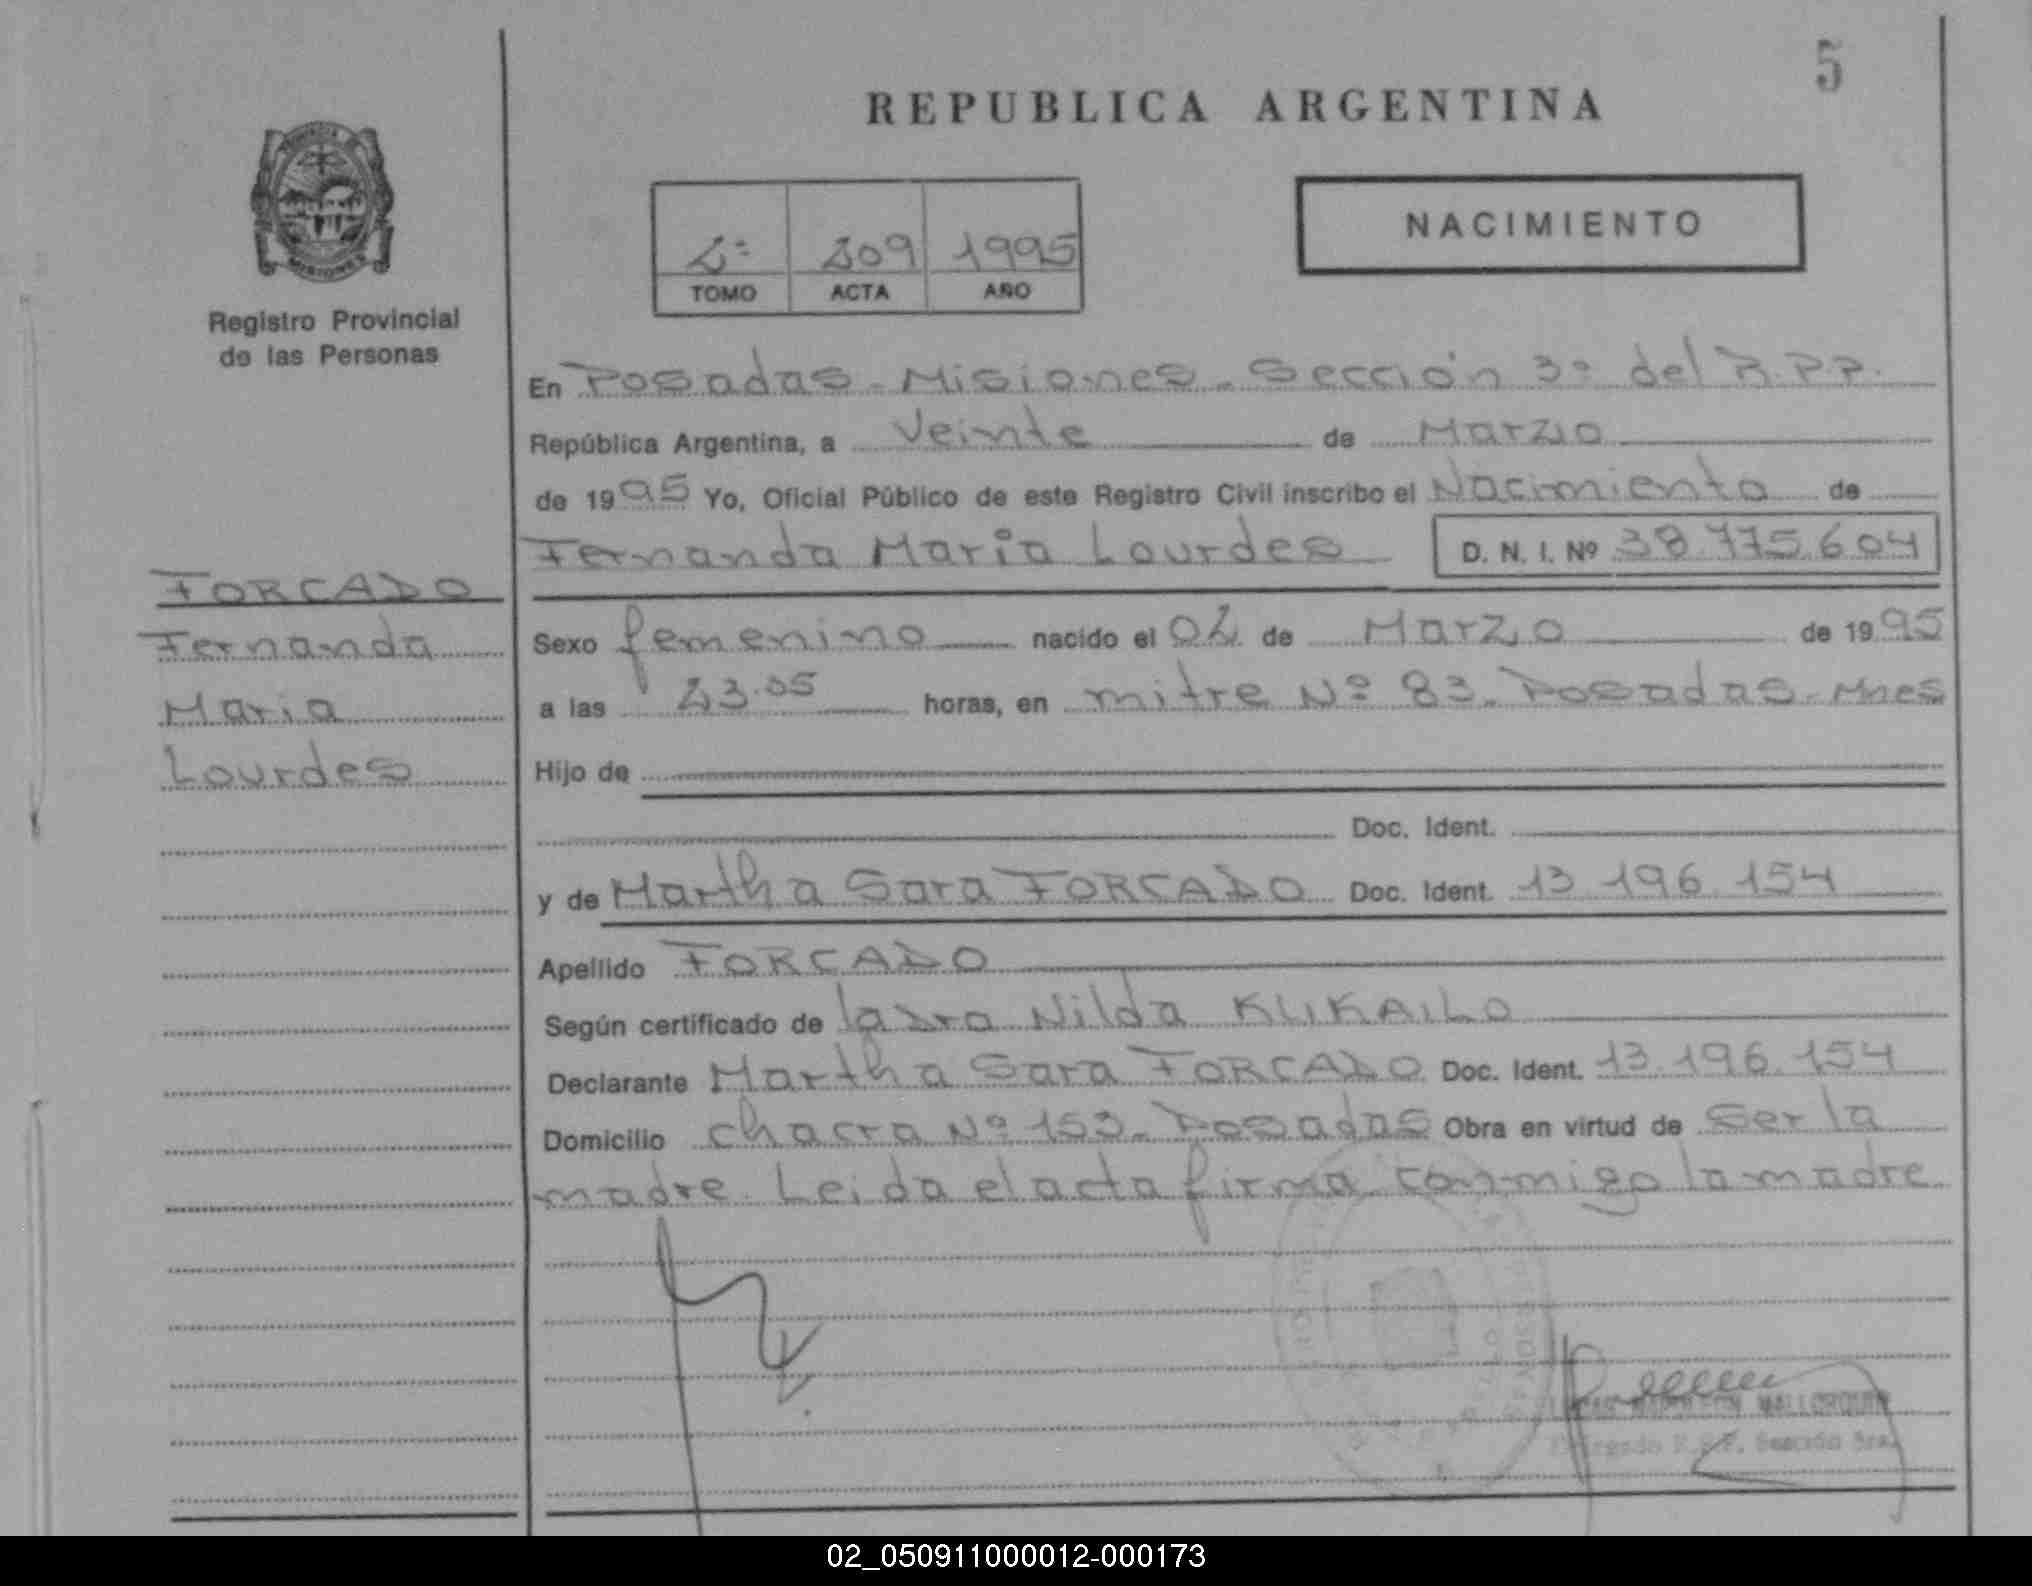 5
REPUBLICA ARGENTINA
NACIMIENTO
2º 209 1995
TOMO ACTA AÑO
MISIONES
Registro Provincial
de las Personas
En Posadas - Misiones - Sección 3º del R.P.P.
República Argentina, a Veinte de Marzo
de 1995 Yo, Oficial Público de este Registro Civil inscribo el Nacimiento de
Fernanda Maria Lourdes D. N. I. Nº 38.775.604
FORCADO
Fernanda
Maria
Lourdes
Sexo femenino nacido el 02 de Marzo de 1995
a las 23.05 horas, en mitre Nº 83 - Posadas - Mnes
Hijo de
Doc. Ident.
y de Martha Sara FORCADO Doc. Ident. 13.196.154
Apellido FORCADO
Según certificado de la Dra Nilda KUKAILO
Declarante Martha Sara FORCADO Doc. Ident. 13.196.154
Domicilio chacra Nº 153 - Posadas Obra en virtud de ser la
madre. Leida el acta firma conmigo la madre
MALLORQUIN
R.P.P. Sección 3ra.
02_050911000012-000173